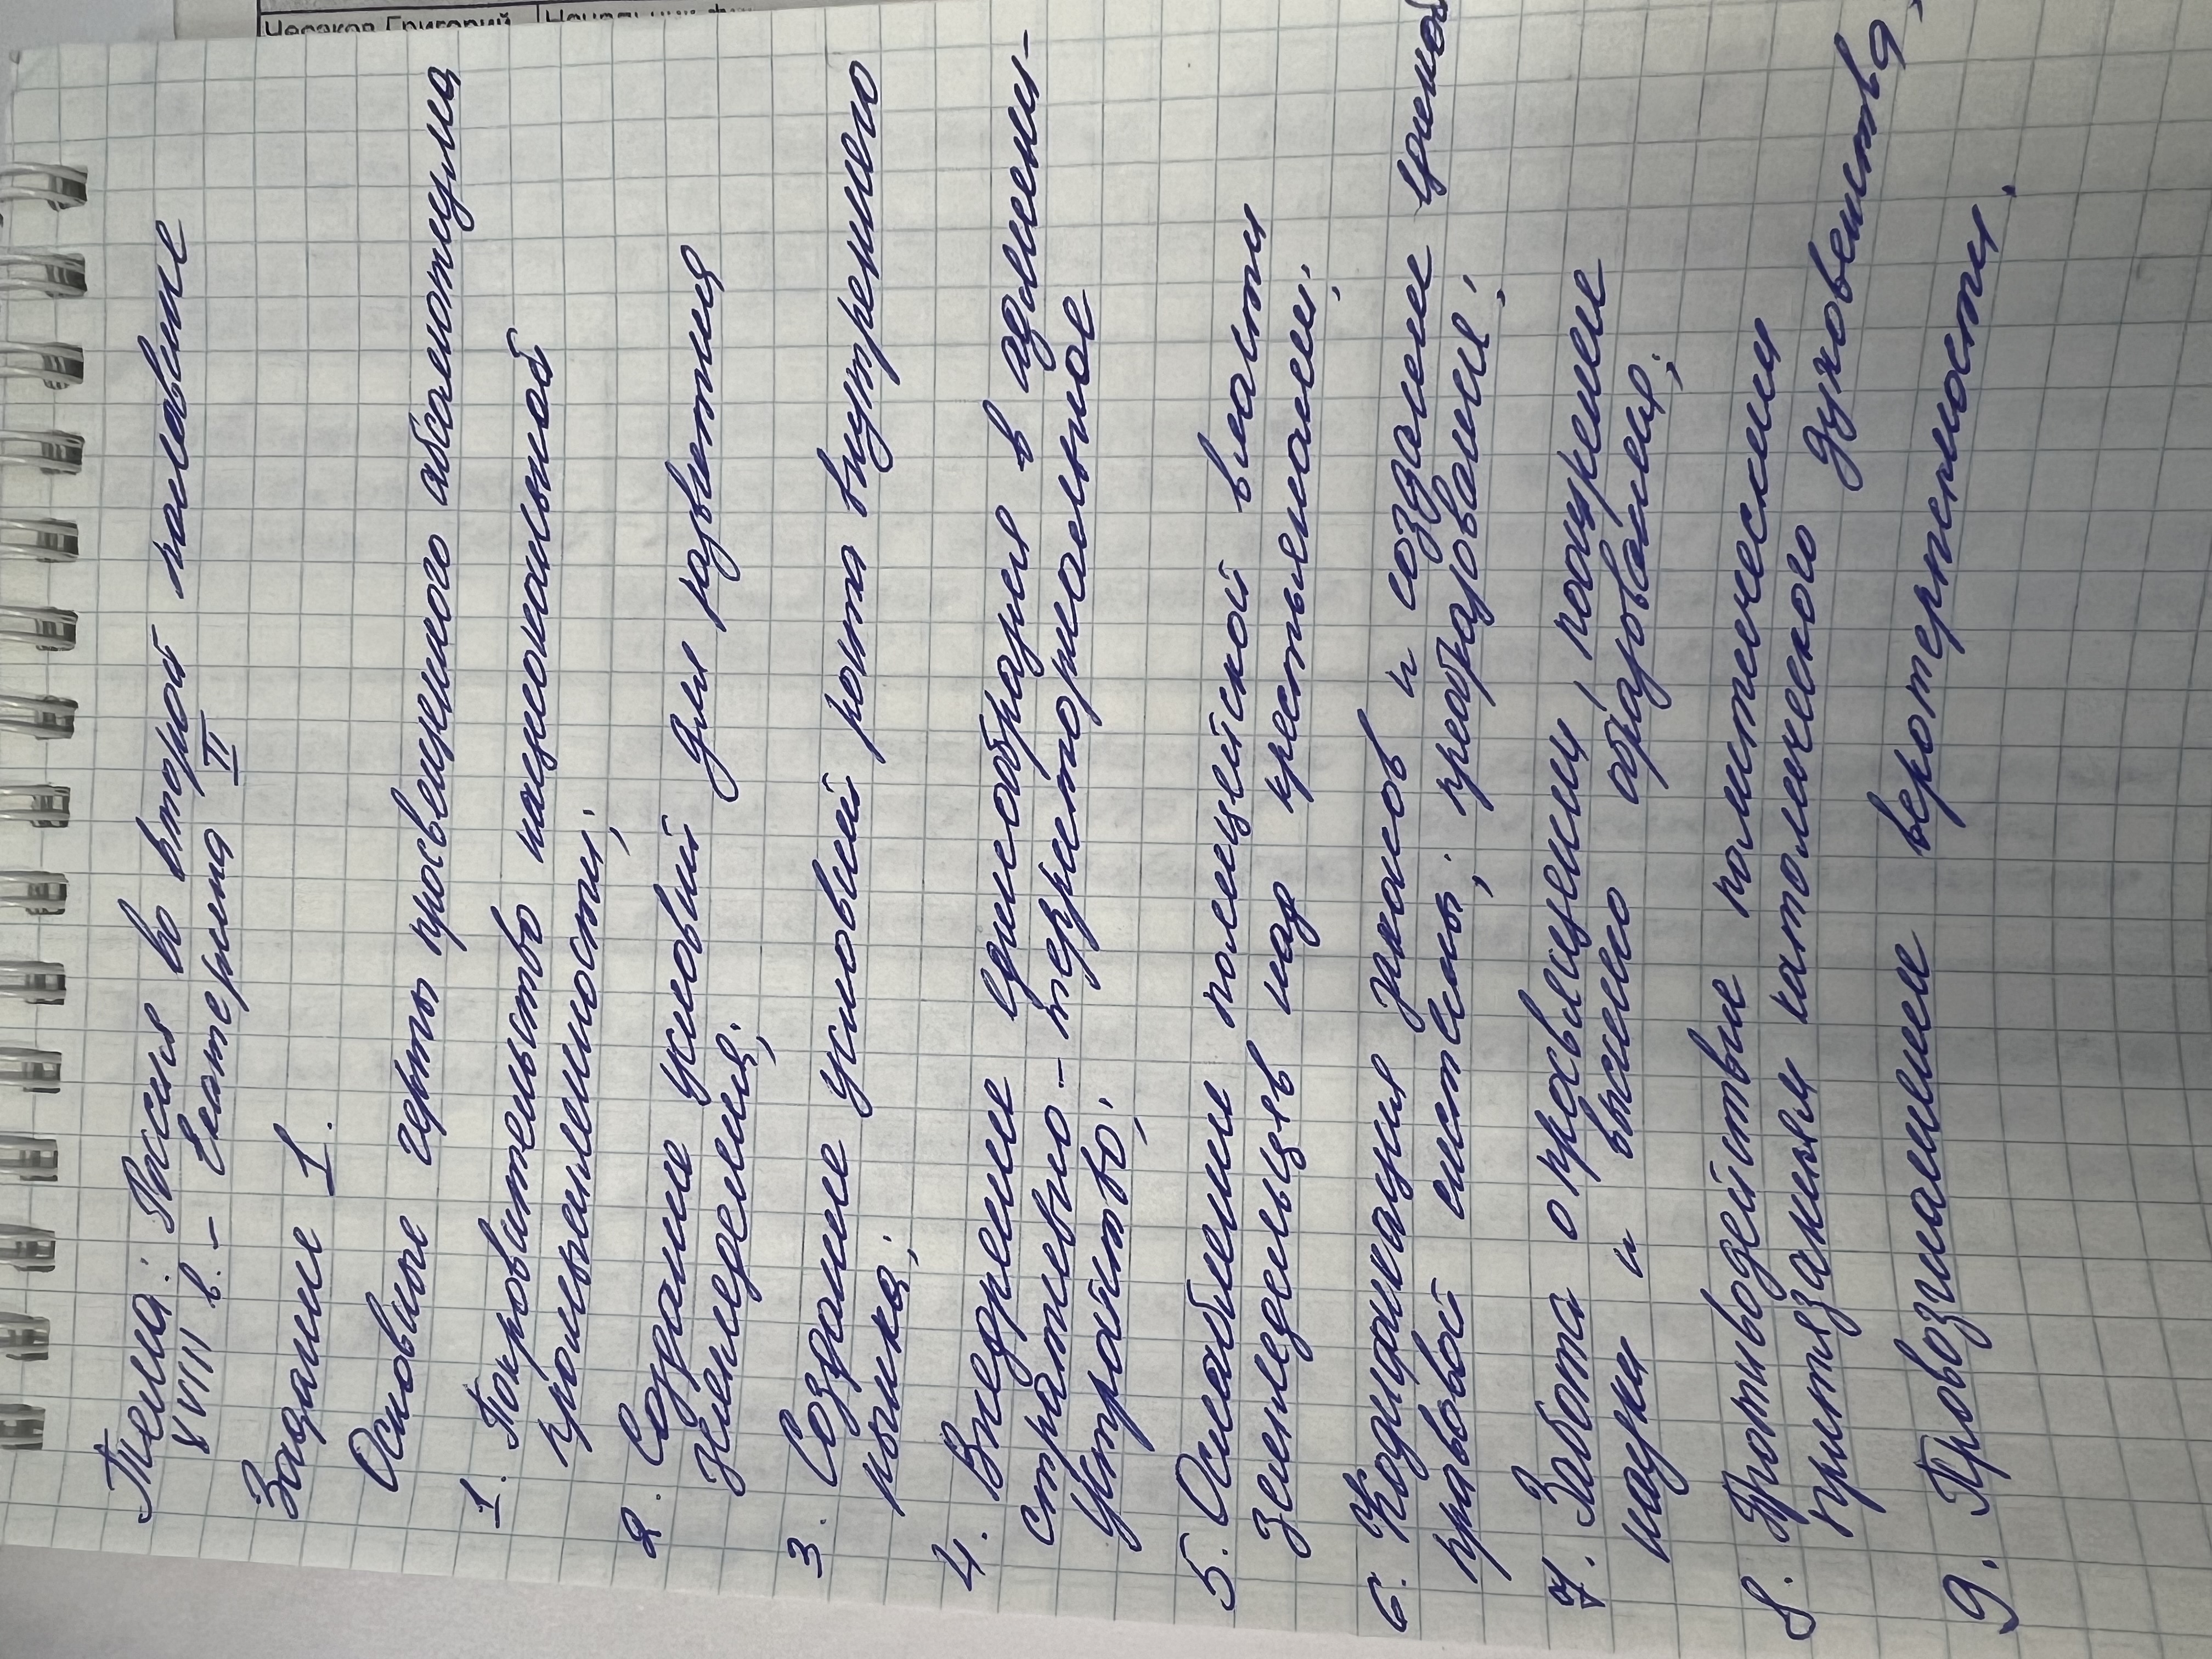 Черяков Григорий
Тема: Россия во второй половине
XVIII в. - Екатерина II
Задание 1.
Основные черты просвещенного абсолютизма
1. Покровительство национальной
промышленности;
2. Создание условий для развития
земледелия;
3. Создание условий роста внутреннего
рынка;
4. Внедрение единообразия в админи-
стративно-территориальное
устройство;
5. Ослабление полицейской власти
земледельцев над крестьянами;
6. Кодификация законов и создание
правовой системы; преобразование;
7. Забота о просвещении, поощрение
науки и высшего образования;
8. Противодействие политическим
притязаниям католического духовенства;
9. Провозглашение веротерпимости.